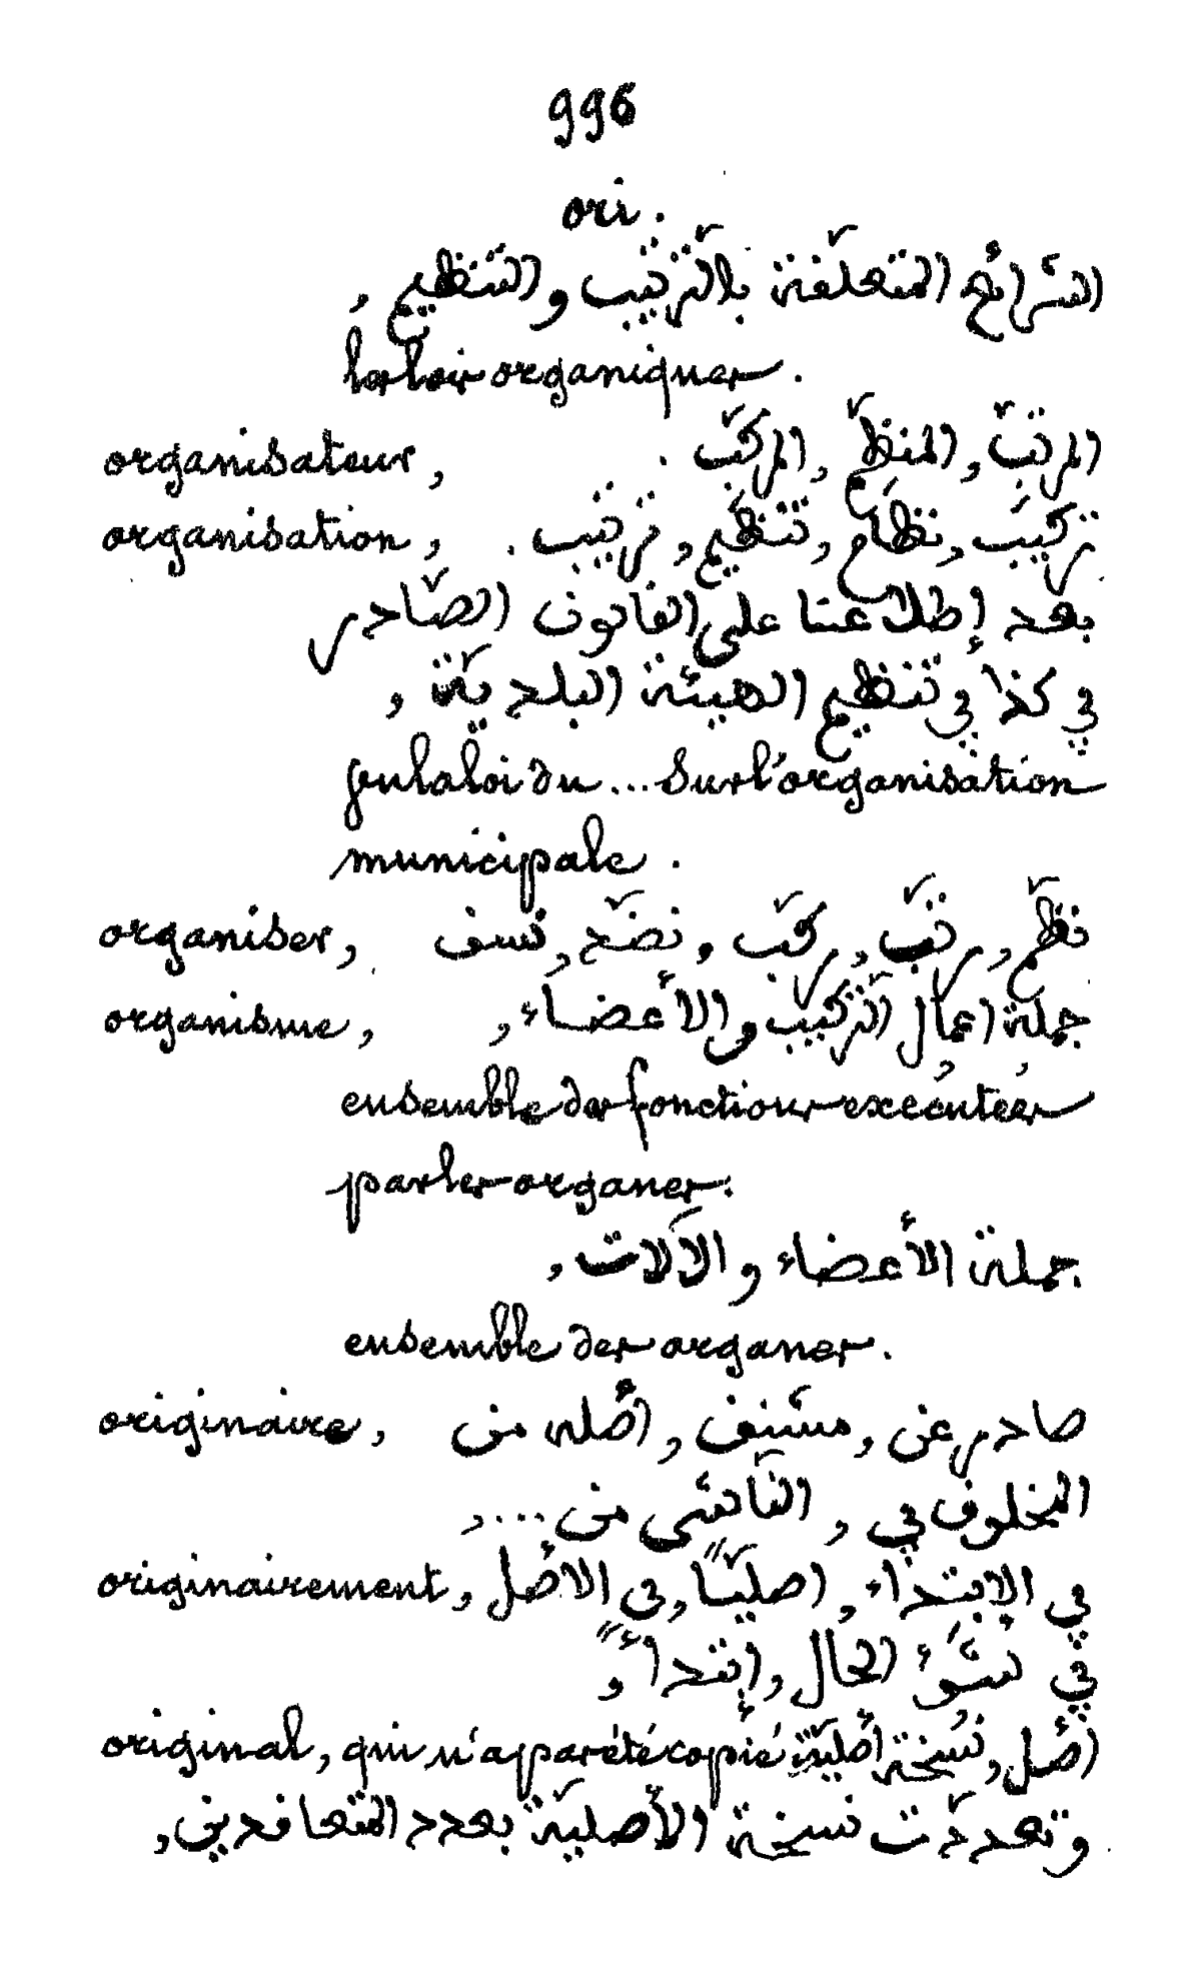 996
ori.
الشرائع المتعلقة بالترتيب والتنظيم ,
les lois organiques.
organisateur, المرتب , المنظم , المركب .
organisation, تركيب , نظام , تنظيم , ترتيب .
بعد إطلاعنا على القانون الصادر
في كذا في تنظيم الهيئة البلدية ,
vu la loi du ... sur l'organisation
municipale.
organiser, نظم , رتب , ركب , نضد , نسق
organisme, جملة اعمال التركيب والأعضاء ,
ensemble des fonctions exécutées
par les organes.
جملة الأعضاء والآلات ,
ensemble des organes.
originaire, صادر عن , , أصله من
المخلوق في , الناشى من .... ,
originairement, في الابتداء , اصليًّا , في الأصل
في نشوء الحال , إبتداءً ,
original, qui n'a pas été copié أصل , نسخة أصلية
وتعددت نسخة الأصلية بعدد المتعاقدين ,